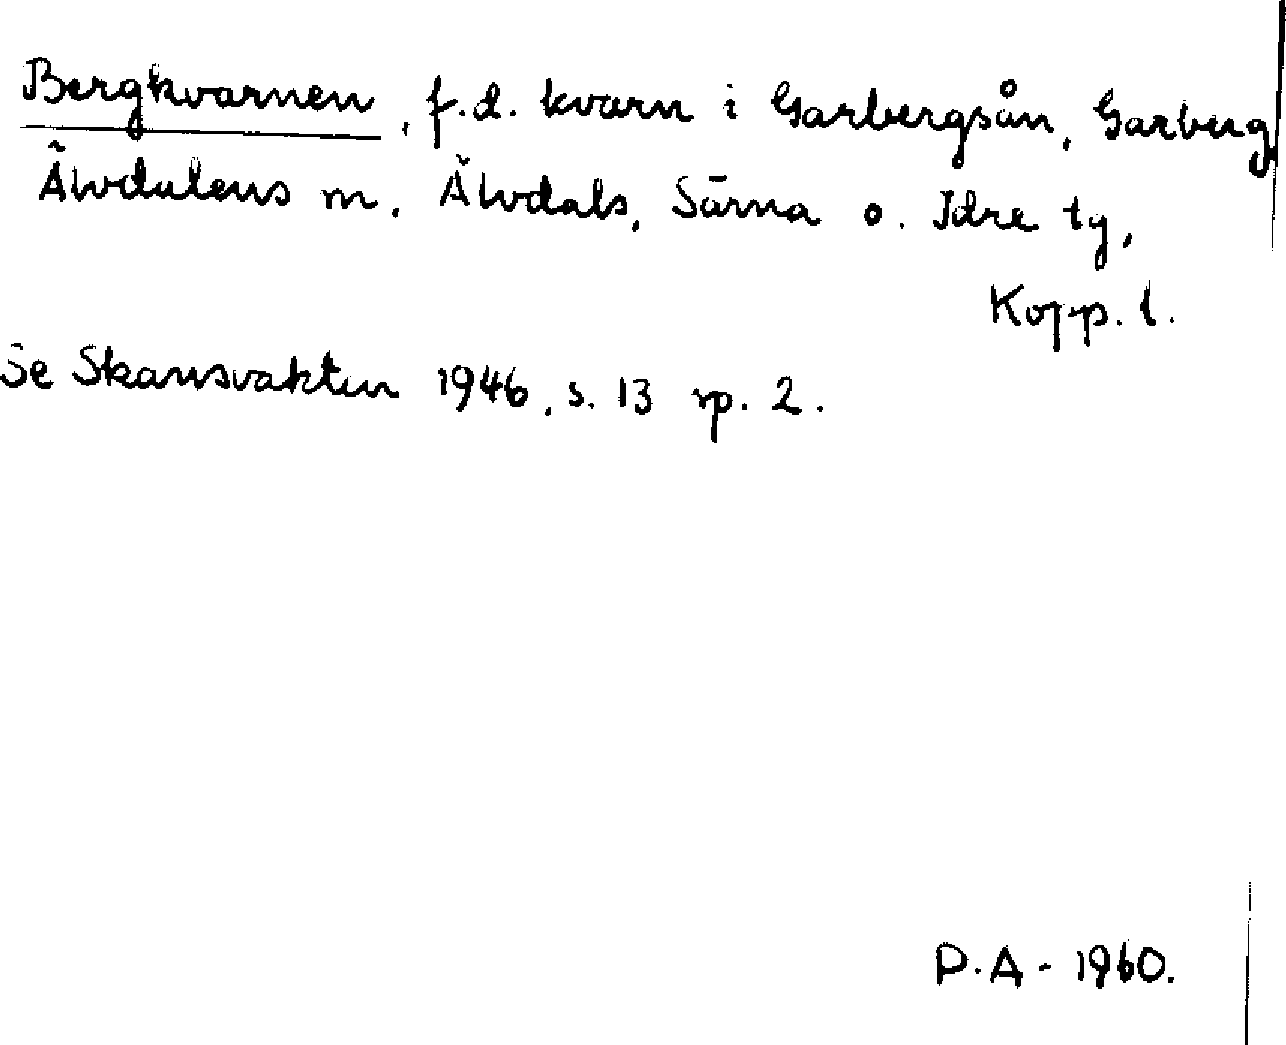 Bergkvarnen, f.d. kvarn i Garbergsån, Garberg,
Älvdalens m, Älvdals, Särna o. Idre tg,
Kopp. l.
Se Skansvakten 1946, s. 13 sp. 2.
P.A - 1960.